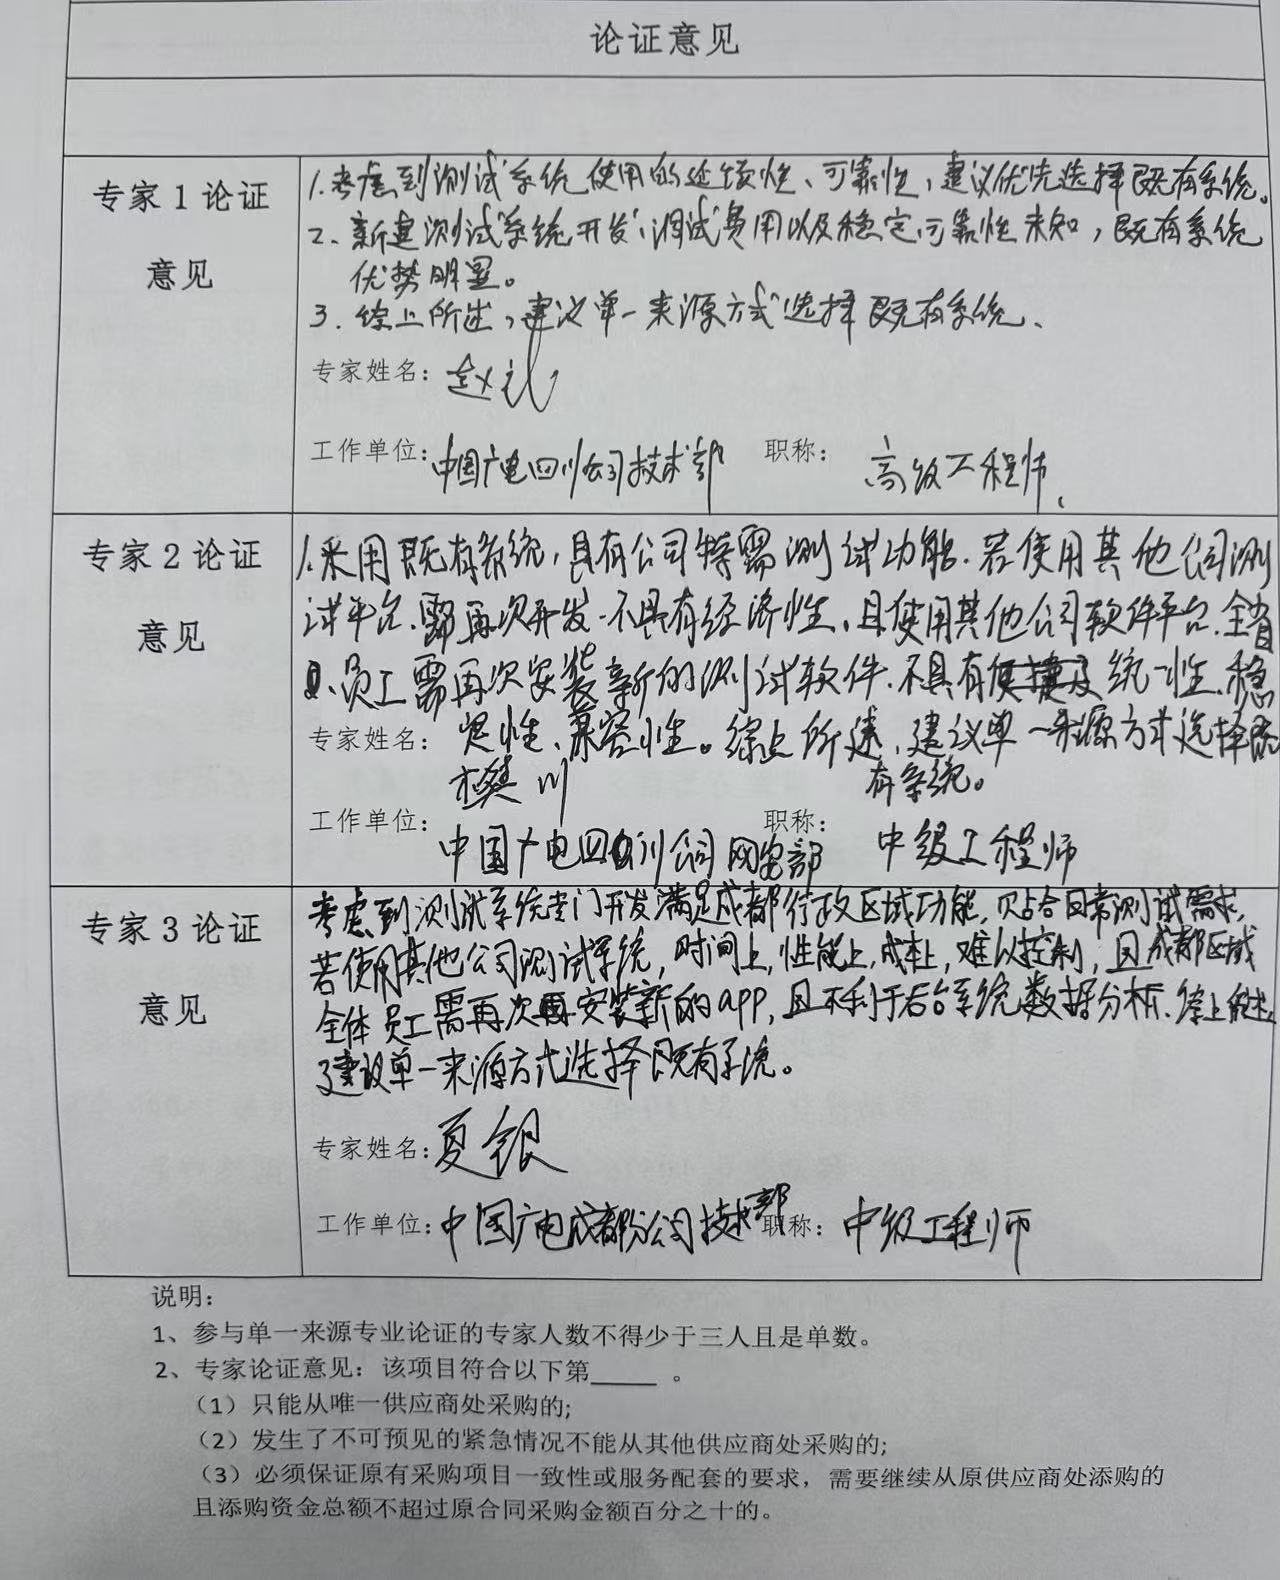 论证意见
专家1论证
意见
1.考虑到测试系统使用的延续性、可靠性,建议优先选择既有系统。
2、新建测试系统开发、调试费用以及稳定可靠性未知,既有系统
优势明显。
3.综上所述,建议单一来源方式选择既有系统、
专家姓名:赵
工作单位:中国广电四川公司技术部 职称:高级工程师、
专家2论证
意见
1.采用既有系统,具有公司特需测试功能.若使用其他公司测
试平台.需再次开发.不具有经济性.且使用其他公司软件平台.全省
员工需再次安装新的测试软件.不具有统一性.稳
定性、兼容性。综上所述,建议单一来源方式选择既
有系统。
专家姓名:樊川
工作单位:中国广电四川公司网安部 职称:中级工程师
专家3论证
意见
考虑到测试系统专门开发满足成都行政区域功能,贴合日常测试需求,
若使用其他公司测试系统,时间上,性能上,成本上,难以控制,且成都区域
全体员工需再次安装新的app,且不利于后台系统数据分析.综上所述,
建议单一来源方式选择既有系统。
专家姓名:夏银
工作单位:中国广电成都分公司技术部 职称:中级工程师
说明:
1、参与单一来源专业论证的专家人数不得少于三人且是单数。
2、专家论证意见:该项目符合以下第_____。
(1)只能从唯一供应商处采购的;
(2)发生了不可预见的紧急情况不能从其他供应商处采购的;
(3)必须保证原有采购项目一致性或服务配套的要求,需要继续从原供应商处添购的
且添购资金总额不超过原合同采购金额百分之十的。